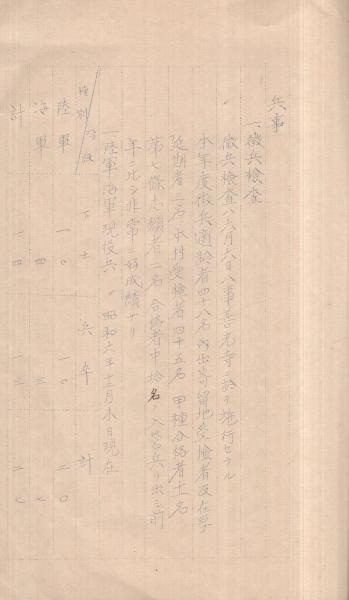 兵事
一、徴兵検査
徴兵検査ハ六月六日八事善光寺ニ於テ施行セラル
本年度徴兵適齢者四十八名内出寄留地受検者及在学
延期者三名本村受検者四十五名甲種合格者十一名
第七條志願者二名合格者中拾名ノ入営兵ヲ出シ前
年ニ比シ非常ニ好成績ナリ
一、陸軍海軍現役兵 昭和六年十二月末日現在
種別/等級 下士 兵卒 計
陸軍 一〇 一〇 二〇
海軍 四 三 七
計 一四 一三 二七